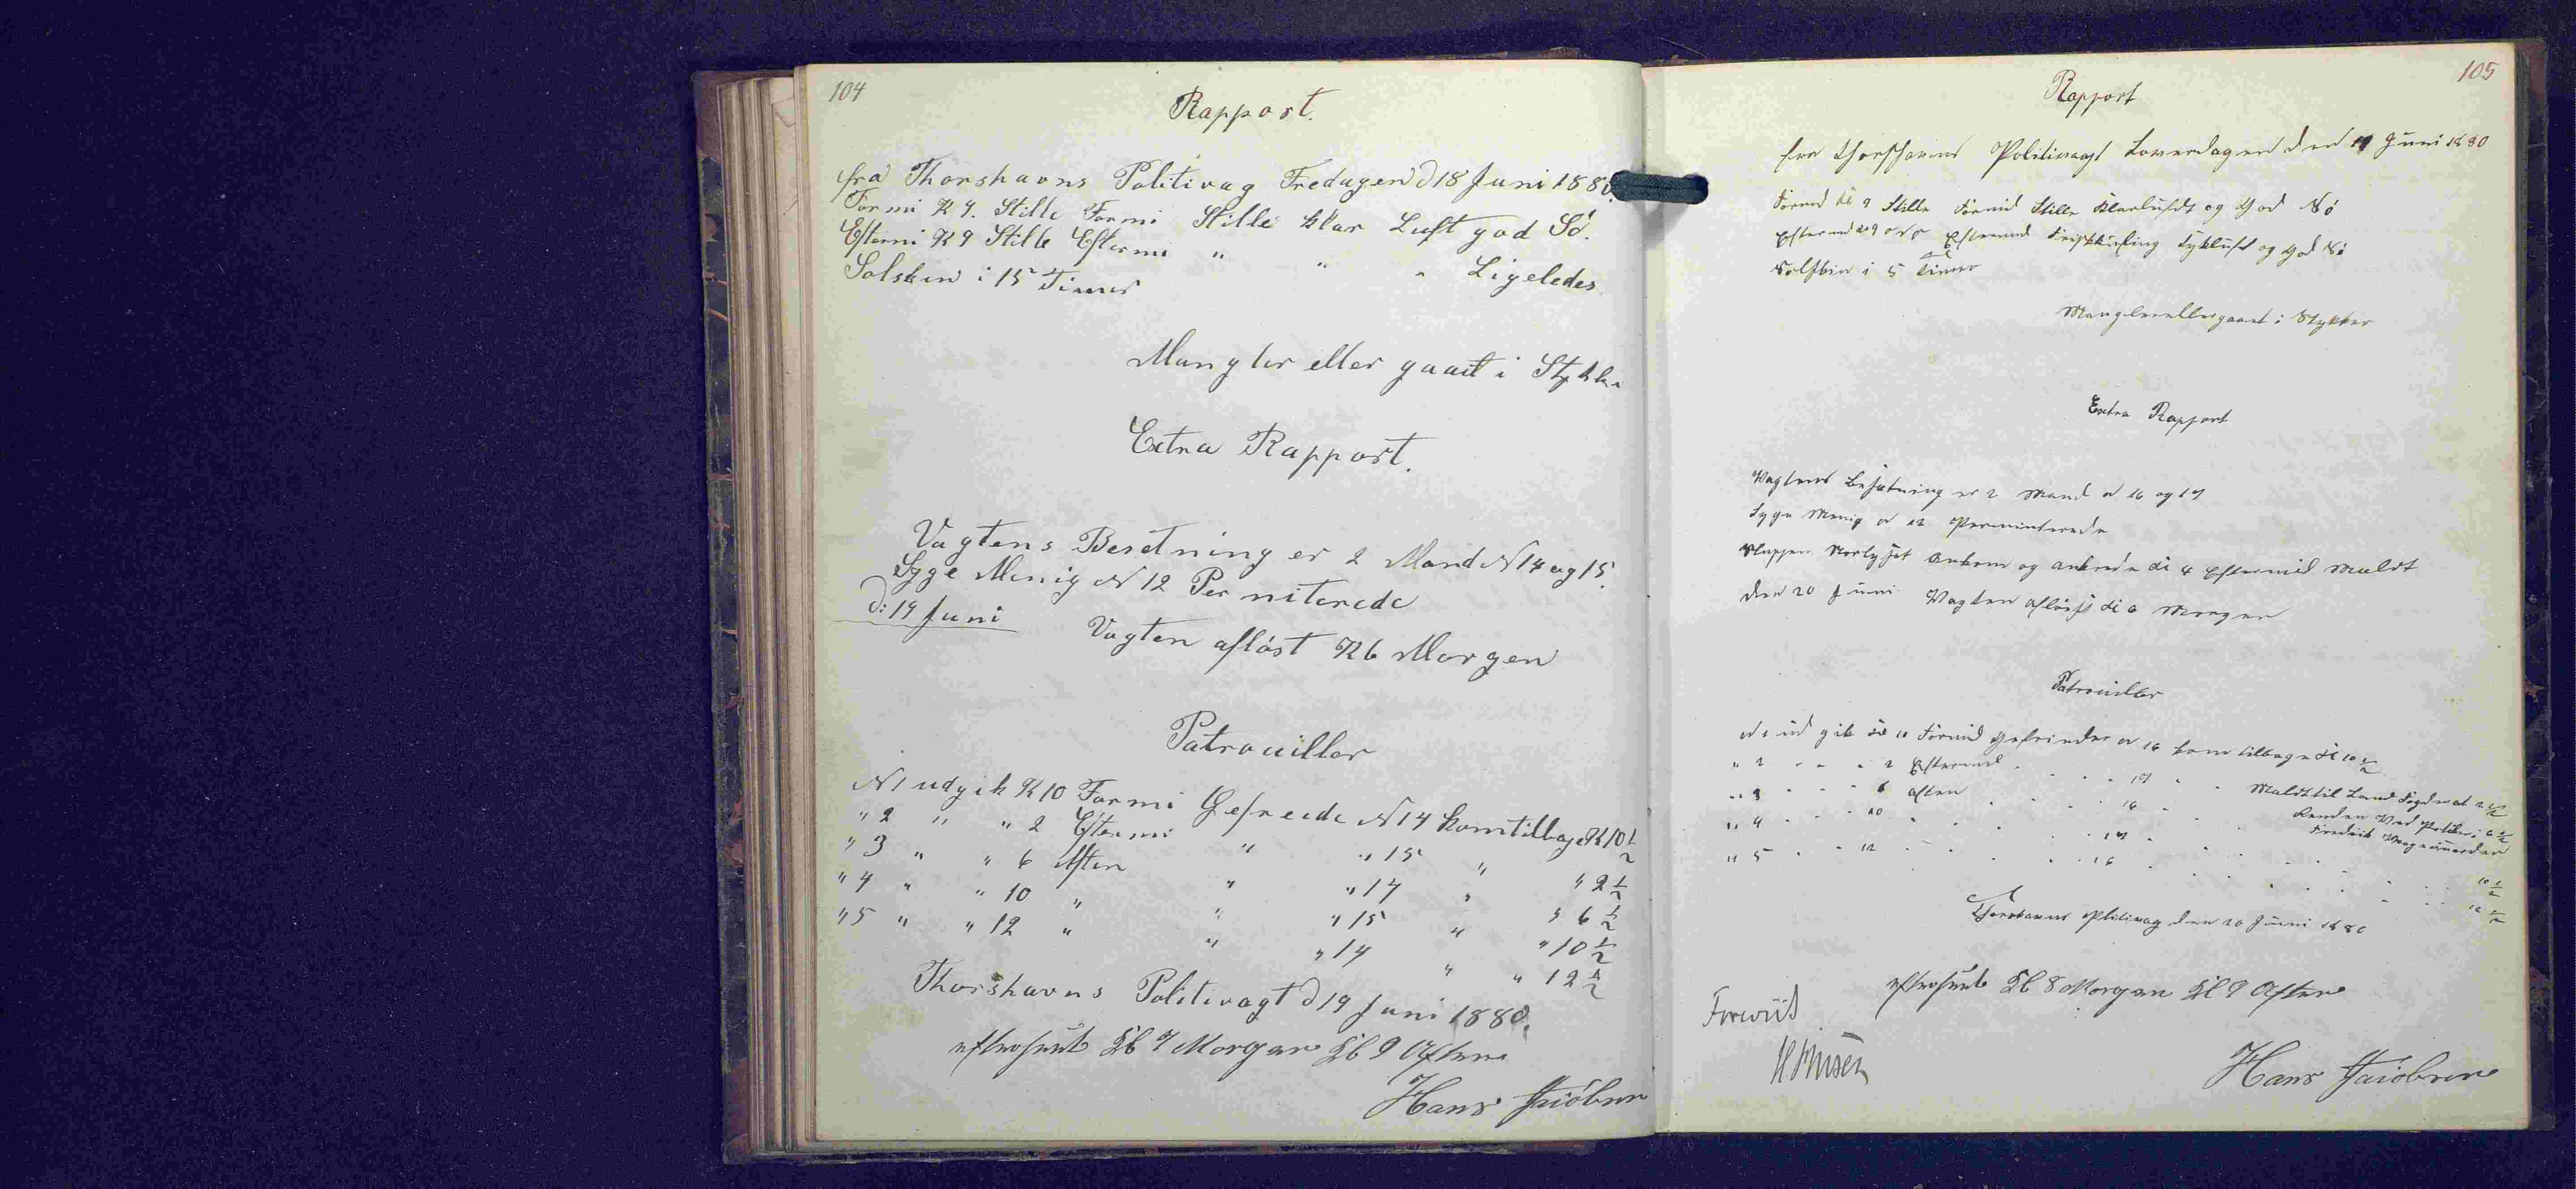 104
Rapport.
fra Thorshavns Politivag Fredagen d 18 Juni 1880.
Formi Kl 9. Stille Formi Stille klar Luft god Sö.
Eftermi Kl 9 Stille Eftermi " " " Ligeledes
Solsken i 15 Timer
Mangler eller gaaet i Stykker
Extra Rapport.
Vagtens Besetning er 2 Mand N 14 og 15.
Syge Menig N 12 Permiterede
d: 19 Juni Vagten aflöst Kl 6 Morgen
Patrouiller
N 1 udgik Kl 10 Formi Gefreide N 14 kom tilbage Kl 10 1/2
" 2 " " 2 Eftermi " " 15 " " 2 1/2
" 3 " " 6 Aften " " 14 " " 6 1/2
" 4 " " 10 " " " 15 " " 10 1/2
" 5 " " 12 " " " 14 " " 12 1/2
Thorshavns Politivagt d 19 Juni 1880.
efterseet Kl 7 Morgen Kl 9 Aften
Hans Jacobsen
105
Rapport
fra Thorshavns Politivagt Loverdagen den 19 Juni 1880
Formid Kl 9 Stille Formid Stille Klarluft og God Sö
Eftermid Kl 9 Eftermid Friskkuling Tykluft og God Sö
Solskin i 5 Timer
Mangler eller gaaet i Stykker
Extra Rapport
Vagtens Besætning er 2 Mand N 16 og 17
Syge Menig N 12 Permiterede
Kl 4 Eftermid Meldt
den 20 Juni Vagten aflöst Kl 6 Morgen
Patrouiller
N 1 ud gik Kl 10 Formid Gefreider N 16 kom tilbage Kl 10 1/2
" 2 " " " 2 Eftermid " " " 17 " " Meldt til Land Fogden at 2 1/2
" 3 " " " 6 Aften " " 16 " 6 1/2
" 4 " " " 10 " " " 17 " " " 10 1/2
" 5 " " 12 " " " 16 " " " 12 1/2
Thorshavns Politivag den 20 Juni 1880
efterseet Kl 8 Morgen Kl 9 Aften
Foreviist
Hans Jacobsen